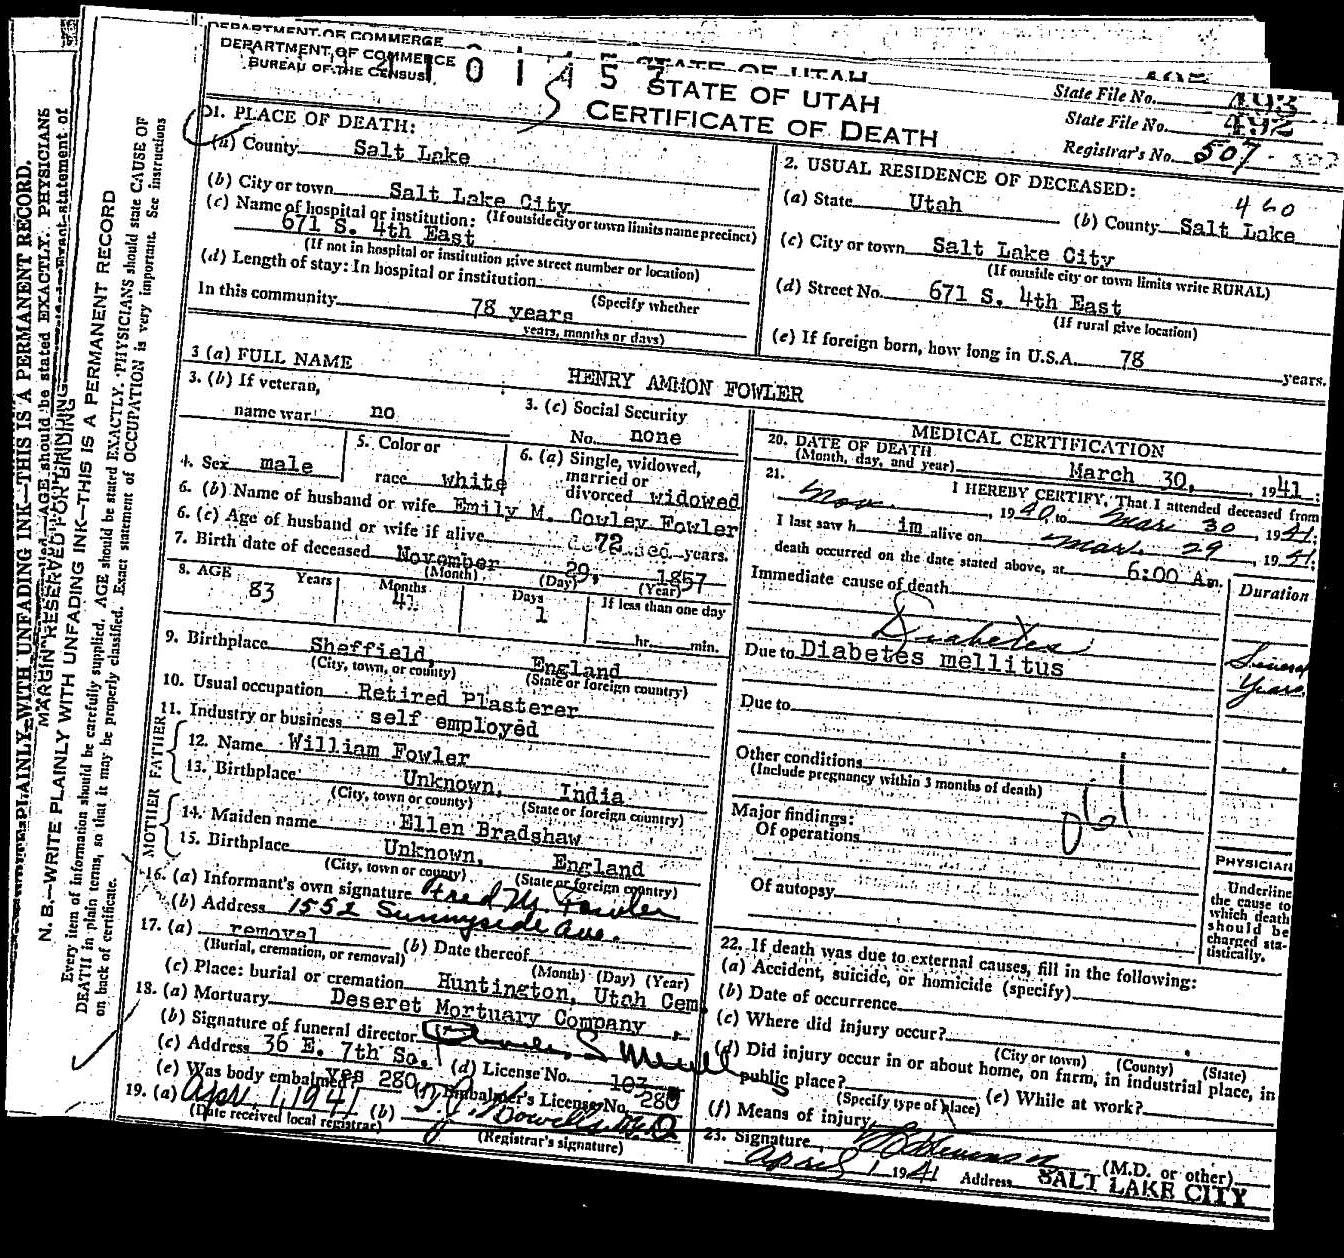 DEPARTMENT OF COMMERCE
DEPARTMENT OF COMMERCE
BUREAU OF THE CENSUS
STATE OF UTAH
STATE OF UTAH
CERTIFICATE OF DEATH
State File No. 493
State File No. 492
Registrar's No. 507
1. PLACE OF DEATH:
(a) County Salt Lake
(b) City or town Salt Lake City
(If outside city or town limits name precinct)
(c) Name of hospital or institution:
671 S. 4th East
(If not in hospital or institution give street number or location)
(d) Length of stay: In hospital or institution
(Specify whether
In this community 78 years
years, months or days)
2. USUAL RESIDENCE OF DECEASED:
460
(a) State Utah (b) County Salt Lake
(c) City or town Salt Lake City
(If outside city or town limits write RURAL)
(d) Street No. 671 S. 4th East
(If rural give location)
(e) If foreign born, how long in U.S.A. 78 years.
3 (a) FULL NAME HENRY AMMON FOWLER
3. (b) If veteran,
name war no
3. (c) Social Security
No. none
4. Sex male
5. Color or
race white
6. (a) Single, widowed,
married or
divorced widowed
6. (b) Name of husband or wife Emily M. Cowley Fowler
6. (c) Age of husband or wife if alive 72 years.
7. Birth date of deceased November 29, 1857
(Month) (Day) (Year)
8. AGE Years Months Days If less than one day
83 4 1 hr. min.
9. Birthplace Sheffield, England
(City, town, or county) (State or foreign country)
10. Usual occupation Retired Plasterer
11. Industry or business self employed
FATHER
12. Name William Fowler
13. Birthplace Unknown, India
(City, town or county) (State or foreign country)
MOTHER
14. Maiden name Ellen Bradshaw
15. Birthplace Unknown, England
(City, town or county) (State or foreign country)
16. (a) Informant's own signature Fred M. Fowler
(b) Address 1552 Sunnyside Ave.
17. (a) removal (b) Date thereof
(Burial, cremation, or removal) (Month) (Day) (Year)
(c) Place: burial or cremation Huntington, Utah Cem.
18. (a) Mortuary Deseret Mortuary Company
(b) Signature of funeral director
(c) Address 36 E. 7th So. (d) License No. 103
(e) Was body embalmed? Yes 280 (f) Embalmer's License No. 280
19. (a) Apr. 1, 1941 (b)
(Date received local registrar) (Registrar's signature)
MEDICAL CERTIFICATION
20. DATE OF DEATH
(Month, day, and year) March 30, 1941
21. I HEREBY CERTIFY, That I attended deceased from
Nov. 1940, to Mar 30, 1941;
I last saw h im alive on Mar. 29 1941;
death occurred on the date stated above, at 6:00 Am.
Immediate cause of death Duration
Diabetes
Due to Diabetes mellitus Several Years
Due to
Other conditions
(Include pregnancy within 3 months of death)
61
Major findings:
Of operations
Of autopsy
PHYSICIAN
Underline
the cause to
which death
should be
charged sta-
tistically.
22. If death was due to external causes, fill in the following:
(a) Accident, suicide, or homicide (specify)
(b) Date of occurrence
(c) Where did injury occur?
(City or town) (County) (State)
(d) Did injury occur in or about home, on farm, in industrial place, in
public place?
(Specify type of place) (e) While at work?
(f) Means of injury
23. Signature (M.D. or other)
April 1 1941 Address SALT LAKE CITY
MARGIN RESERVED FOR BINDING
N. B.—WRITE PLAINLY WITH UNFADING INK—THIS IS A PERMANENT RECORD
Every item of information should be carefully supplied. AGE should be stated EXACTLY. PHYSICIANS should state CAUSE OF
DEATH in plain terms, so that it may be properly classified. Exact statement of OCCUPATION is very important. See instructions
on back of certificate.